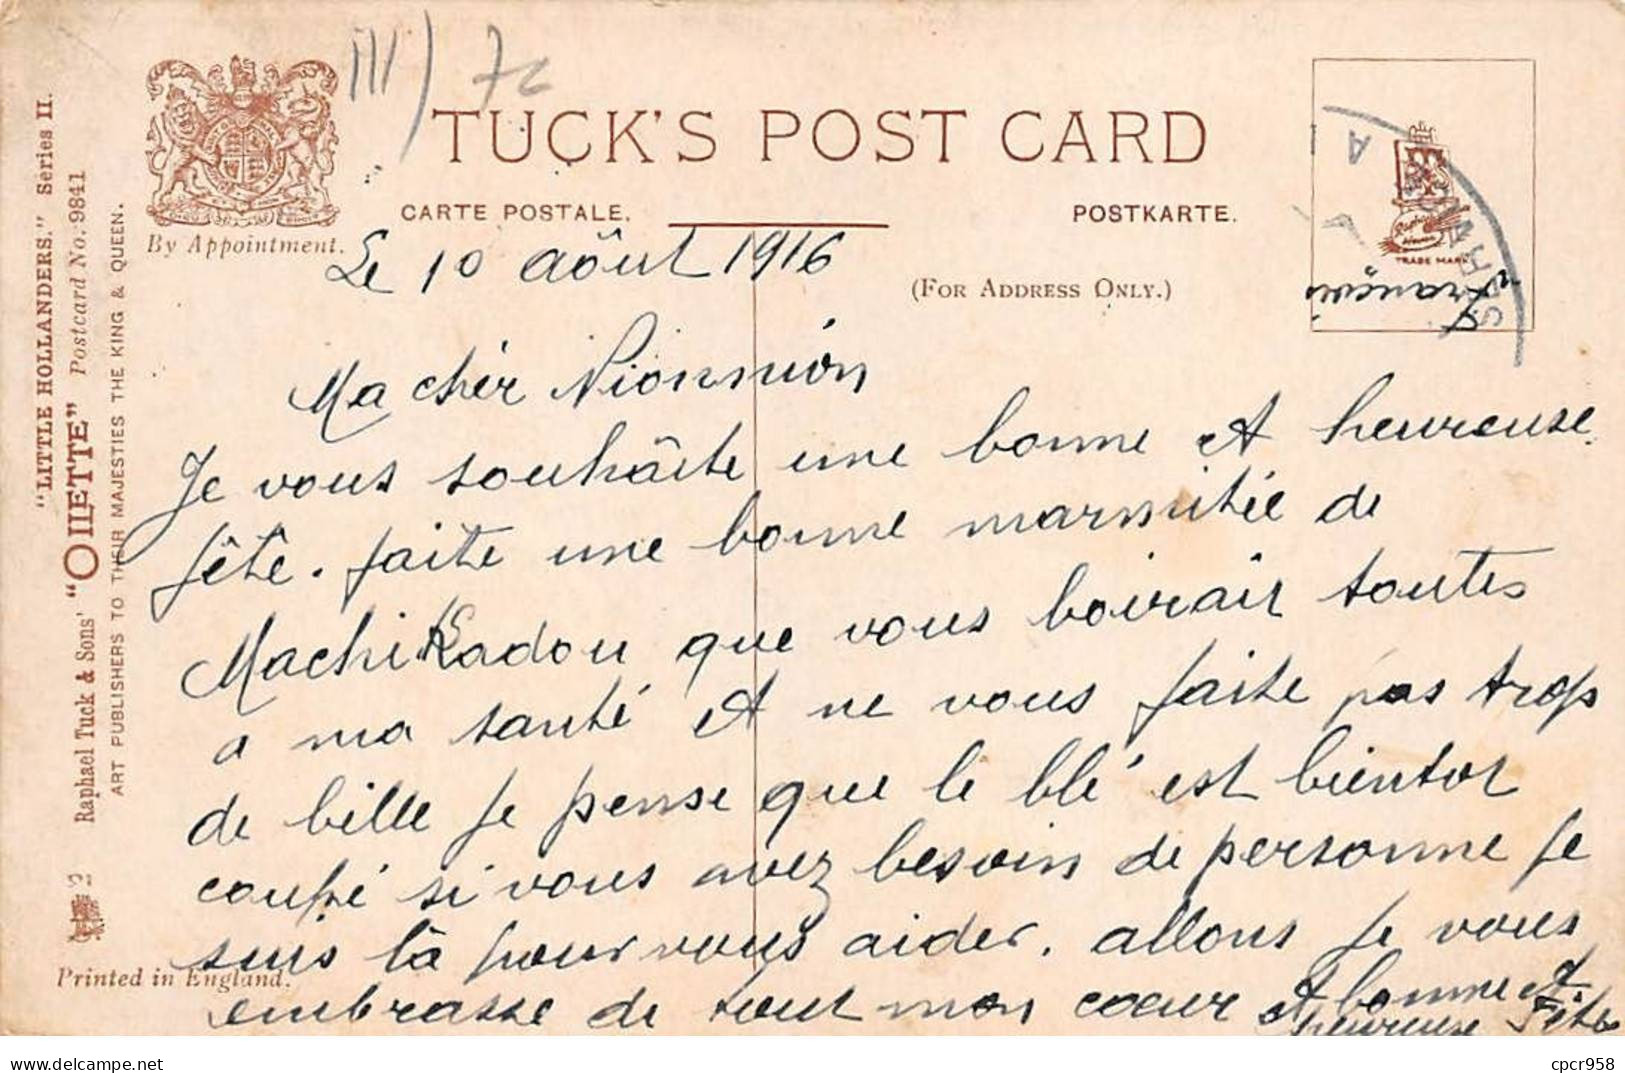 "LITTLE HOLLANDERS." Series II.
Raphael Tuck & Sons' "OILETTE" Postcard No. 9841
ART PUBLISHERS TO THEIR MAJESTIES THE KING & QUEEN.
By Appointment.
TUCK'S POST CARD
CARTE POSTALE.
POSTKARTE.
(FOR ADDRESS ONLY.)
TRADE MARK
François
Le 10 aôut 1916
Ma chér
Je vous souhâite une bonne et heureuse
fête. faite une bonne marmitée de
MachiKadou que vous boirair toutes
a ma santé et ne vous faite pas trop
de bille je pense que le blé est bientot
coupé si vous avez besoin de personne je
suis là pour vous aider. allons je vous
embrasse de tout mon cœur et bonne et
heureuse Fête
Printed in England.
cpcr958